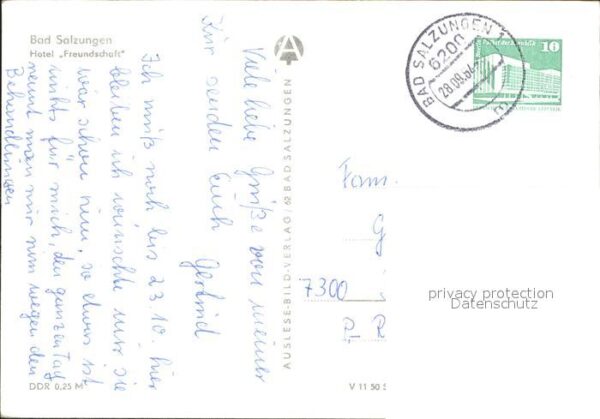 Bad Salzungen
Hotel „Freundschaft"
Viele liebe Grüße von meiner
Kur senden Euch Gertrud
Ich muß noch bis 23.10. hier
bleiben ich wünschte mir sie
wär schon rum, so etwas ist
nichts für mich, den ganzen Tag
rennt man nur rum wegen den
Behandlungen
DDR 0,25 M
AUSLESE-BILD-VERLAG / 62 BAD SALZUNGEN
V 11 50 S
A
BAD SALZUNGEN 1
6200
28.09.87
m
10
Fam.
G
7300
privacy protection
Datenschutz